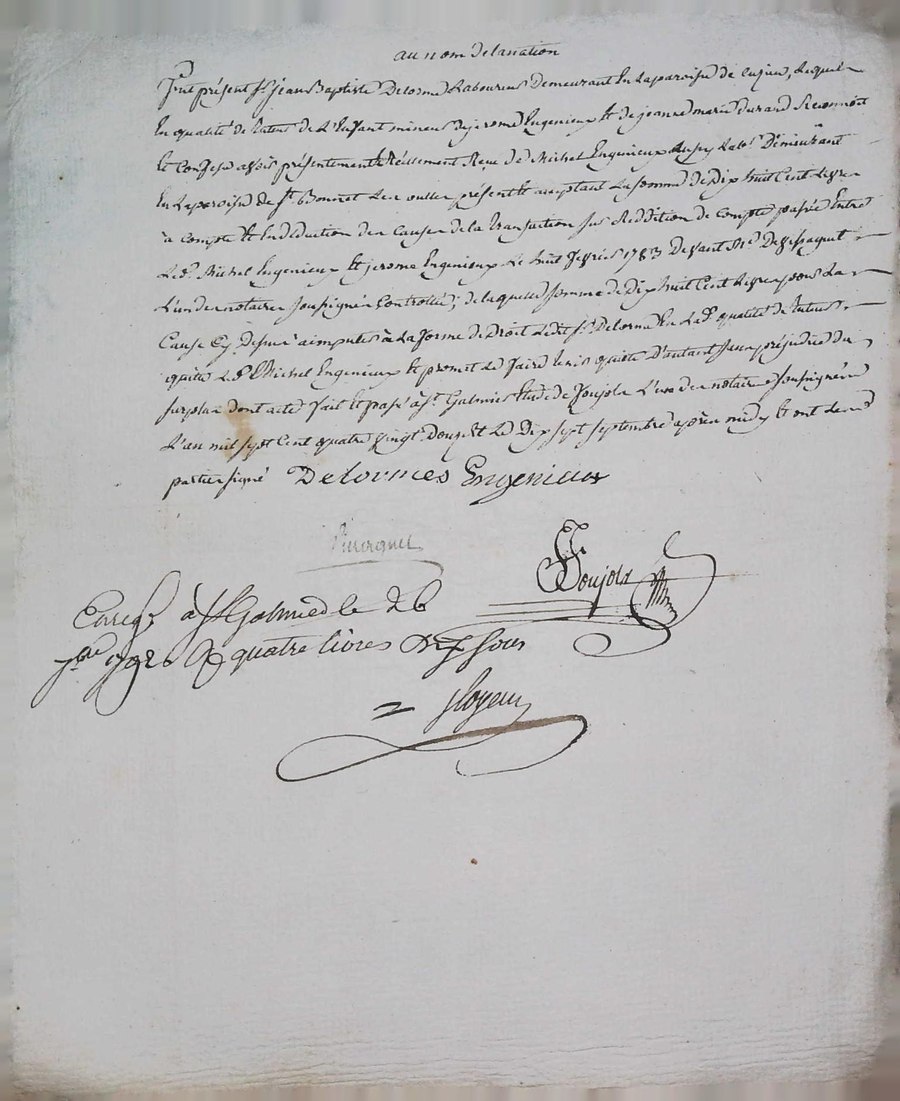 au nom de la nation
Fut présent Sr. Jean Baptiste Delorme Laboureur demeurant En la paroisse de Cuzieu, Lequel
En qualité de tuteur de L'Enfant mineur de jerome Engenieux Et de jeanne marie durand Reconnoit
Et Confesse avoir présentement & Réellement Reçu de Michel Engenieux aussy Labr. Demeurant
En la paroisse de St. Bonnet Les oulles présent & acceptant La somme de Dix huit Cent Livres
à Compte Et En déduction des Causes de la transaction sur Reddition de Compte passée Entre
Led. Michel Engenieux Et jerome Engenieux Le huit fevrier 1783 Devant Me.
L'un des notaires soussignés Controllée; de laquelle somme de Dix huit Cent Livres pour La
Cause Cy dessus a imputer à La forme de Droit Ledit Sr. Delorme En Lad. qualité de tuteur
quitte Led. Michel Engenieux Et promet Le faire tenir quitte D'autant sans préjudice du
surplus dont acte fait Et passé à St. Galmier Etude de Poujols L'un des notaires soussignés
L'an mil sept Cent quatre vingt Douze Et Le Dix sept septembre après midy Et ont Les
parties signé Delormes Engenieux
Poujols
Enreg. à St Galmier le 26
7bre 1792 R quatre livres dix sous